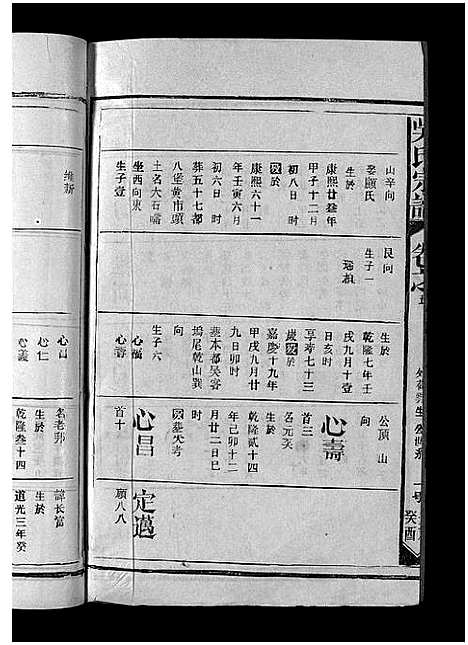 吳氏宗譜
癸酉
山辛向
娶顧氏
生於
康熙廿叁年
甲子十二月
初八日時
歿於
康熙六十一
年壬寅六月
初六日時
葬五十七都
八堡黃市頭
土名大石嘴
坐西向東
生子壹
艮向
生子一
生於
乾隆七年壬
戌九月十壹
日亥時
享壽七十三
歲歿於
嘉慶十九年
甲戌九月廿
九日卯時
葬本都吳家
塢尾乾山巽
向
生子六
心福
心壽
公頂山
向
心壽
首三
名元亥
生於
乾隆貳十四
年己卯十二
月廿二日巳
時
歿葬失考
心昌
首十
定邁
願八八
維新
心昌
心仁
心義
名老郭
生於
乾隆叁十四
諱長富
生於
道光三年癸